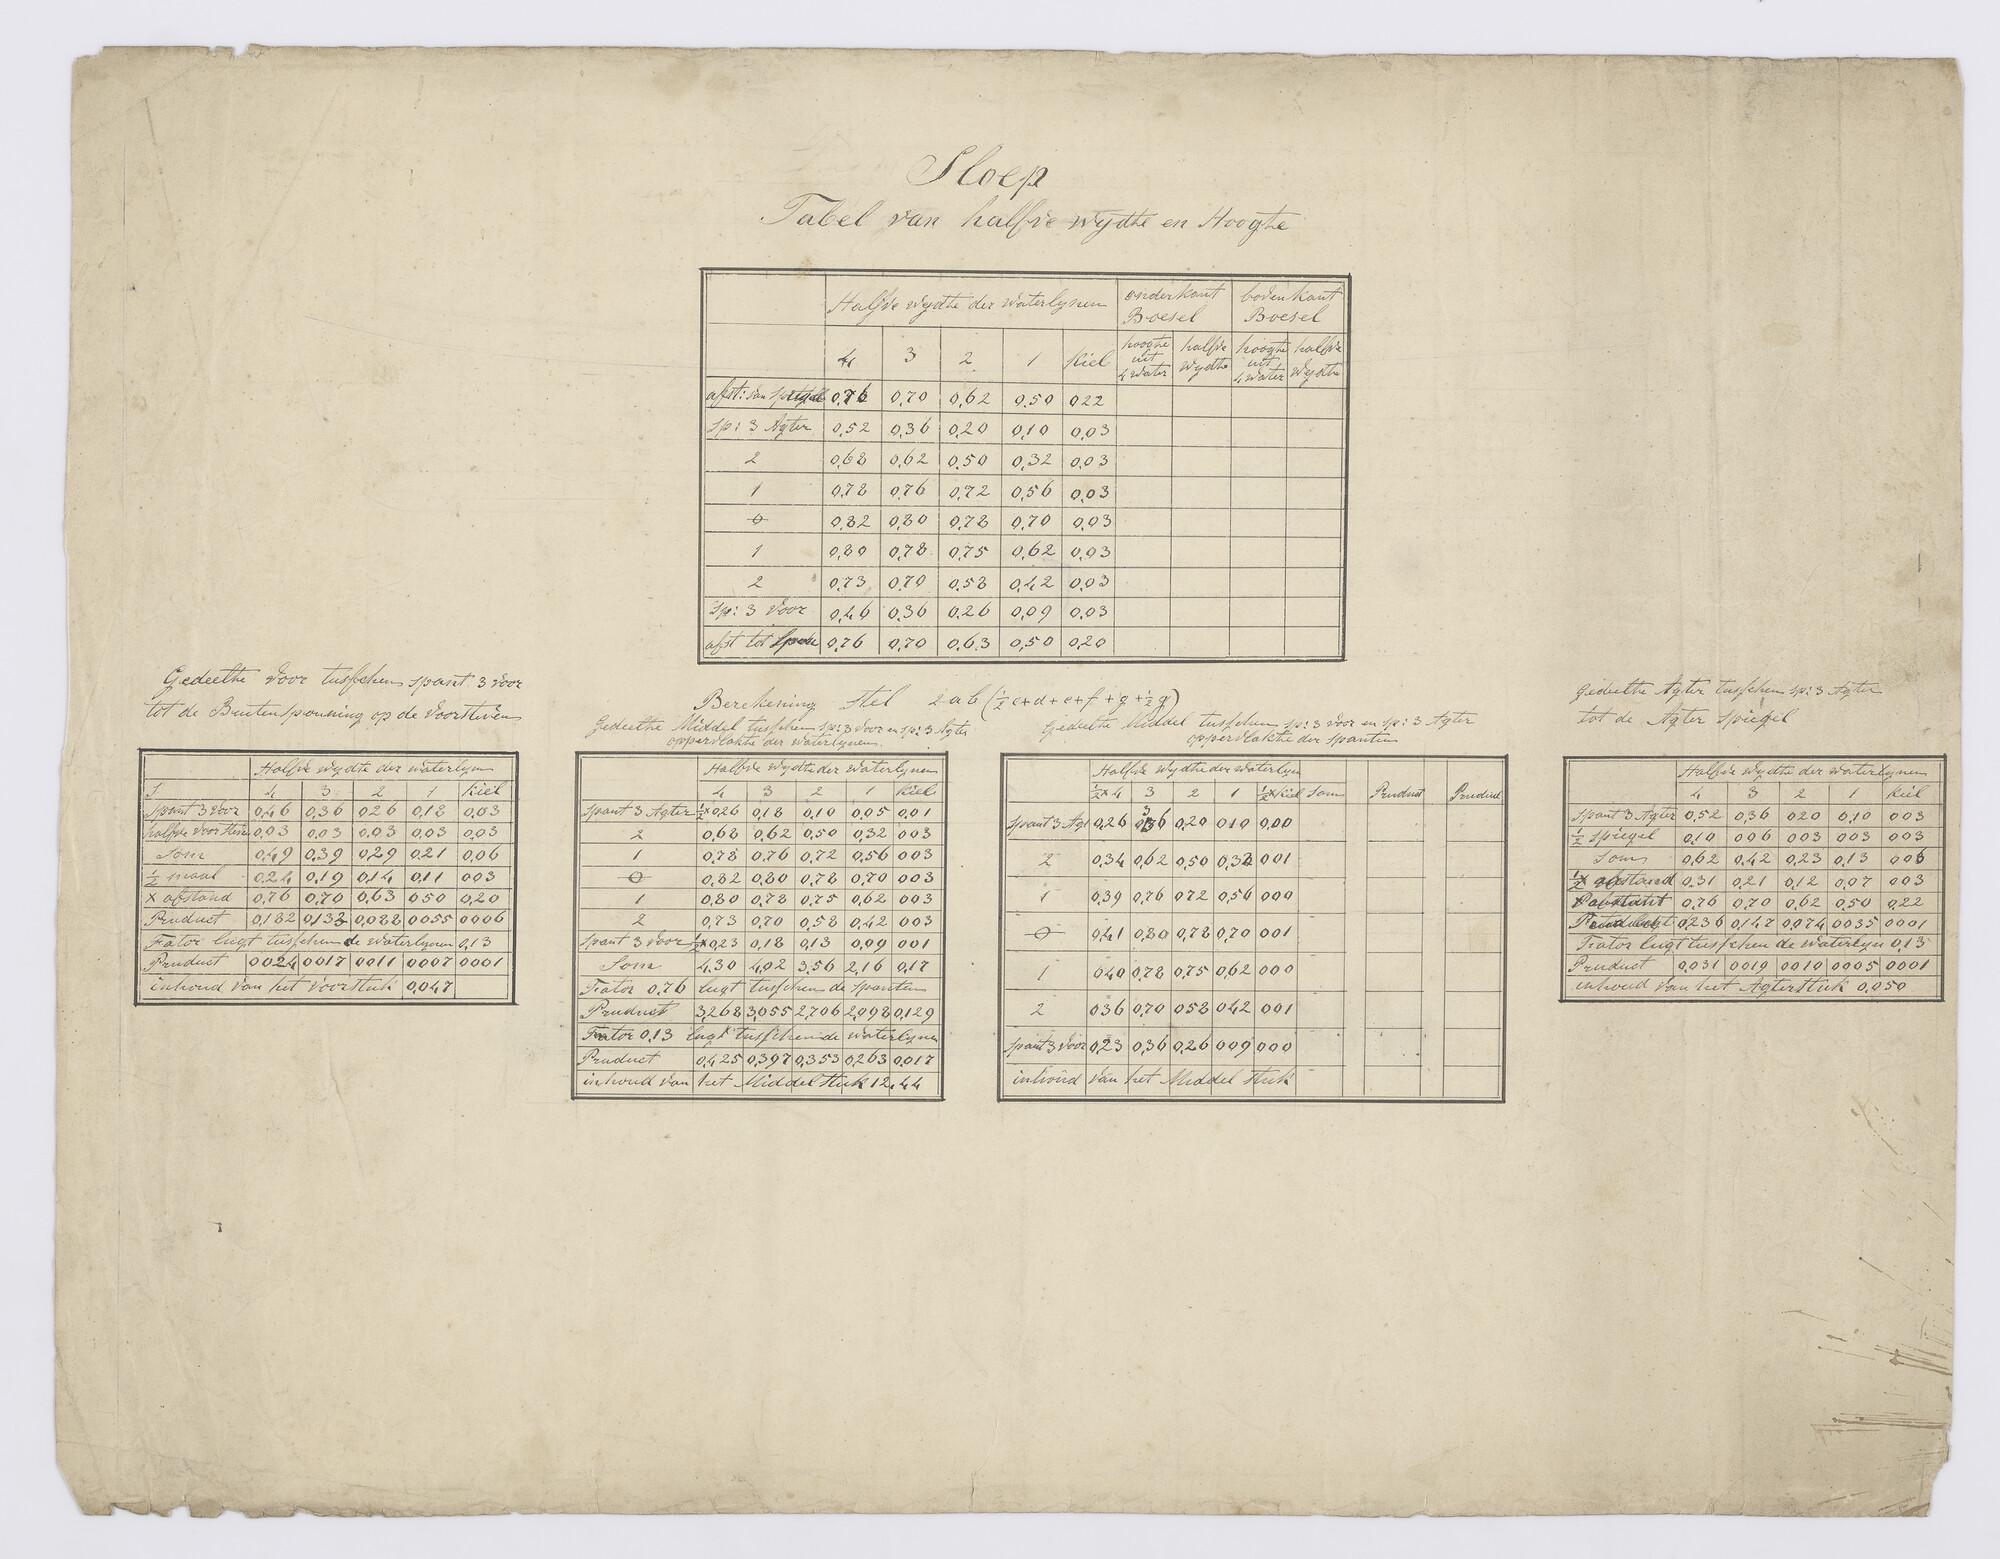 Sloep
Tabel van halfve wydte en Hooghte
Halfve wydte der waterlynen onderkant Boesel bovenkant Boesel
4 3 2 1 Kiel hooghte uit 4 water halfve wydte hooghte uit 4 water halfve wydte
afst: van spiegel 0,76 0,70 0,62 0,50 022
sp: 3 Agter 0,52 0,36 0,20 0,10 0,03
2 0,68 0,62 0,50 0,32 0,03
1 0,78 0,76 0,72 0,56 0,03
0 0,82 0,80 0,78 0,70 0,03
1 0,80 0,78 0,75 0,62 0,03
2 0,73 0,70 0,58 0,42 0,03
sp: 3 voor 0,46 0,36 0,26 0,09 0,03
afst tot 0,76 0,70 0,63 0,50 0,20
Gedeelthe voor tusschen spant 3 voor
tot de Buitensponning op de voorsteven
Halfve wydte der waterlyn
4 3 2 1 Kiel
Spant 3 voor 0,46 0,36 026 0,18 0,03
halfve voorsteven 0,03 0,03 0,03 0,03 0,03
Som 0,49 0,39 0,29 0,21 0,06
½ maal 0,24 0,19 0,14 0,11 003
x afstand 0,76 0,70 0,63 050 0,20
Product 0,182 0,133 0,088 0055 0006
Frator lugt tusschen de waterlynen 0,13
Product 0024 0017 0011 0007 0001
inhoud van het voorstuk 0,047
Berekening Stel 2ab (½c+d+e+f+g+½g)
Gedeelthe Middel tusschen sp: 3 voor en sp: 3 Agter
oppervlakthe der waterlynen
Halfve wydte der waterlynen
4 3 2 1 Kiel
Spant 3 Agter ½x0,26 0,18 0,10 0,05 0,01
2 0,68 0,62 0,50 0,32 003
1 0,78 0,76 0,72 0,56 003
0 0,82 0,80 0,78 0,70 003
1 0,80 0,78 0,75 0,62 003
2 0,73 0,70 0,58 0,42 003
Spant 3 voor ½x0,23 0,18 0,13 0,09 001
Som 4,30 4,02 3,56 2,16 0,17
Frator 0,76 lugt tusschen de spanten
Product 3,268 3,055 2,706 2,098 0,129
Frator 0,13 lugt tusschen de waterlynen
Product 0,425 0,397 0,353 0,263 0,017
inhoud van het Middelstuk 12,44
Gedeelthe Middel tusschen sp: 3 voor en sp: 3 Agter
oppervlakthe der spanten
Halfve wydte der waterlyn
½x4 3 2 1 ½xKiel Som Product Product
Spant 3 Agt 0,26 0,36 0,20 010 0,00
2 0,34 0,62 0,50 0,32 001
1 0,39 0,76 072 0,56 000
0 0,41 0,80 0,78 0,70 001
1 040 0,78 0,75 0,62 000
2 036 0,70 058 042 001
Spant 3 voor 0,23 0,36 0,26 009 000
inhoud van het Middel stuk
Gedeelthe Agter tusschen sp: 3 Agter
tot de Agter spiegel
Halfve wydte der waterlynen
4 3 2 1 Kiel
Spant 3 Agter 0,52 0,36 020 0,10 003
½ spiegel 0,10 006 003 003 003
Som 0,62 0,42 0,23 0,13 006
½x 0,31 0,21 0,12 0,07 003
x afstant 0,76 0,70 0,62 0,50 0,22
Product 0,236 0,147 0,074 0035 0001
Frator lugt tusschen de waterlyn 0,13
Product 0,031 0019 0010 0005 0001
inhoud van het Agterstuk 0,050